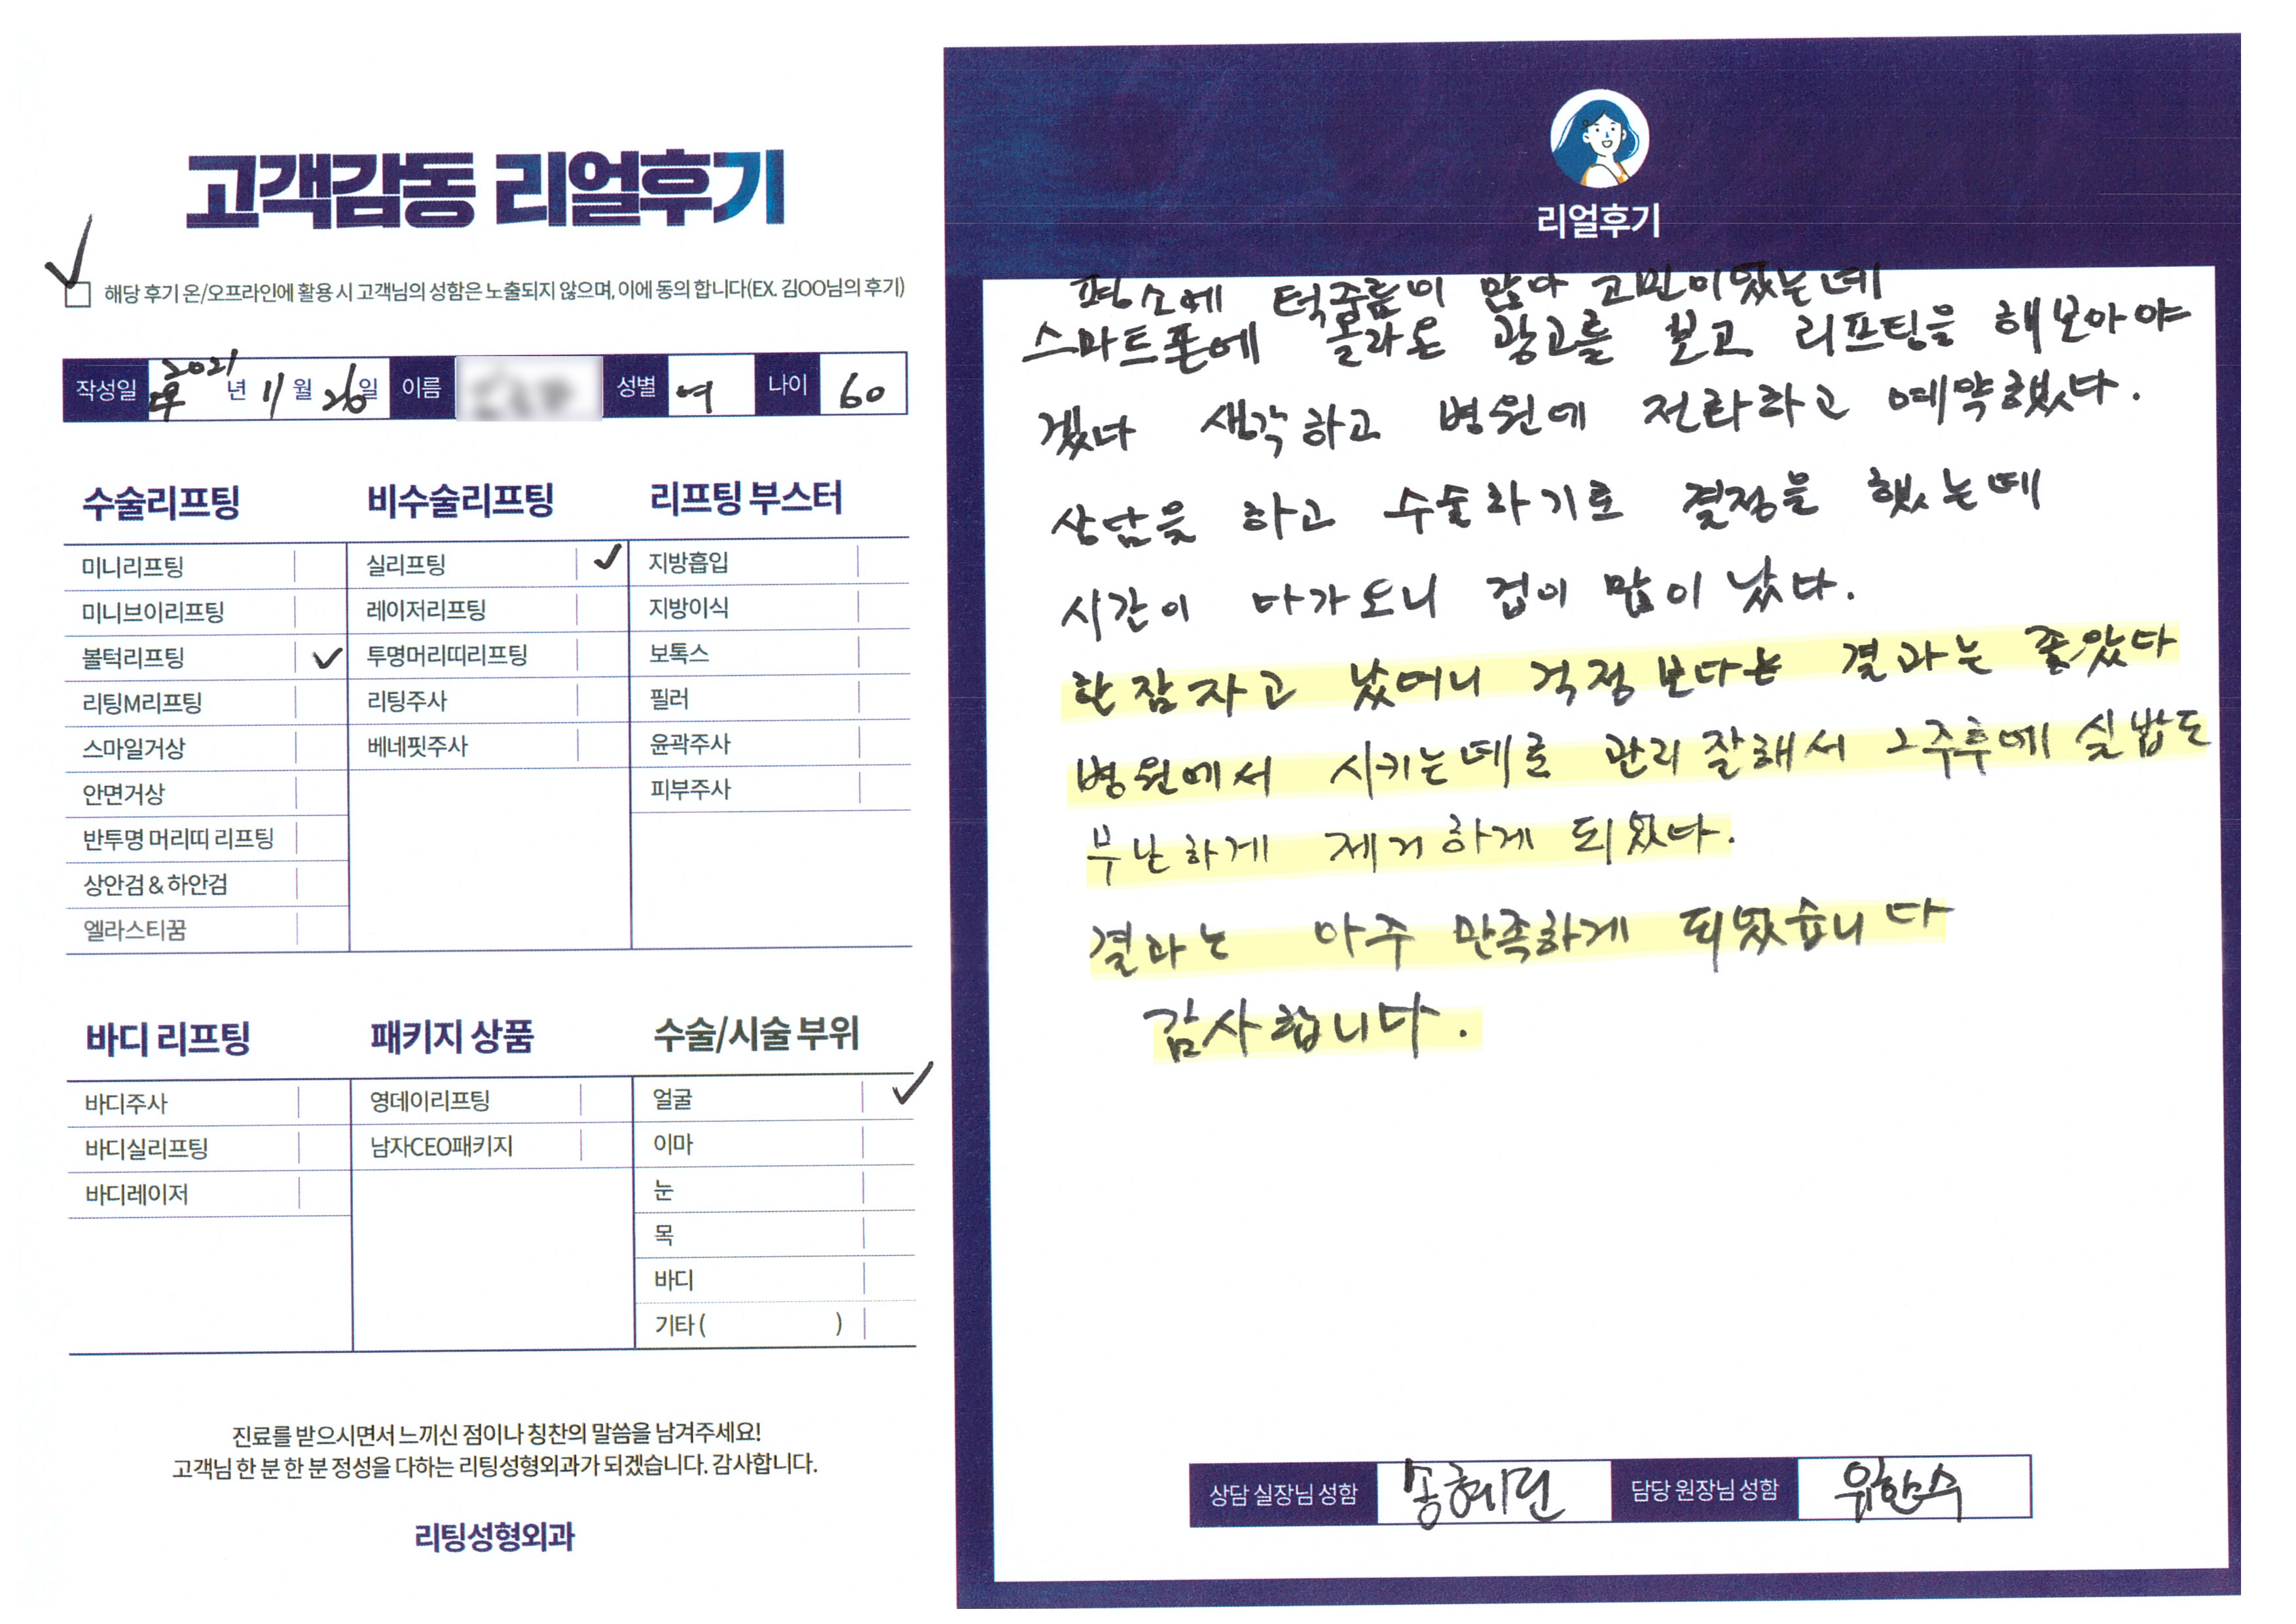 고객감동 리얼후기
해당 후기 온/오프라인에 활용 시 고객님의 성함은 노출되지 않으며, 이에 동의 합니다(EX. 김OO님의 후기)
작성일 2021 년 11 월 26 일 이름 성별 여 나이 60
수술리프팅
미니리프팅
미니브이리프팅
볼턱리프팅
리팅M리프팅
스마일거상
안면거상
반투명 머리띠 리프팅
상안검 & 하안검
엘라스티꿈
비수술리프팅
실리프팅
레이저리프팅
투명머리띠리프팅
리팅주사
베네핏주사
리프팅 부스터
지방흡입
지방이식
보톡스
필러
윤곽주사
피부주사
바디 리프팅
바디주사
바디실리프팅
바디레이저
패키지 상품
영데이리프팅
남자CEO패키지
수술/시술 부위
얼굴
이마
눈
목
바디
기타 ( )
진료를 받으시면서 느끼신 점이나 칭찬의 말씀을 남겨주세요!
고객님 한 분 한 분 정성을 다하는 리팅성형외과가 되겠습니다. 감사합니다.
리팅성형외과
리얼후기
평소에 턱주름이 많아 고민이였는데
스마트폰에 올라온 광고를 보고 리프팅을 해보아야
겠다 생각하고 병원에 전화하고 예약했다.
상담을 하고 수술하기로 결정을 했는데
시간이 다가오니 겁이 많이 났다.
한잠자고 났더니 걱정보다는 결과는 좋았다
병원에서 시키는데로 관리잘해서 2주후에 실밥도
무난하게 제거하게 되었다.
결과는 아주 만족하게 되었습니다
감사합니다.
상담 실장님 성함 송혜린 담당 원장님 성함 위한수